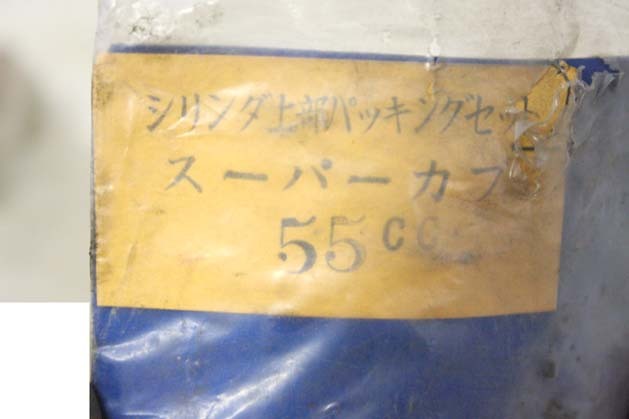 シリンダ上部パッキングセット
スーパーカブ
55cc